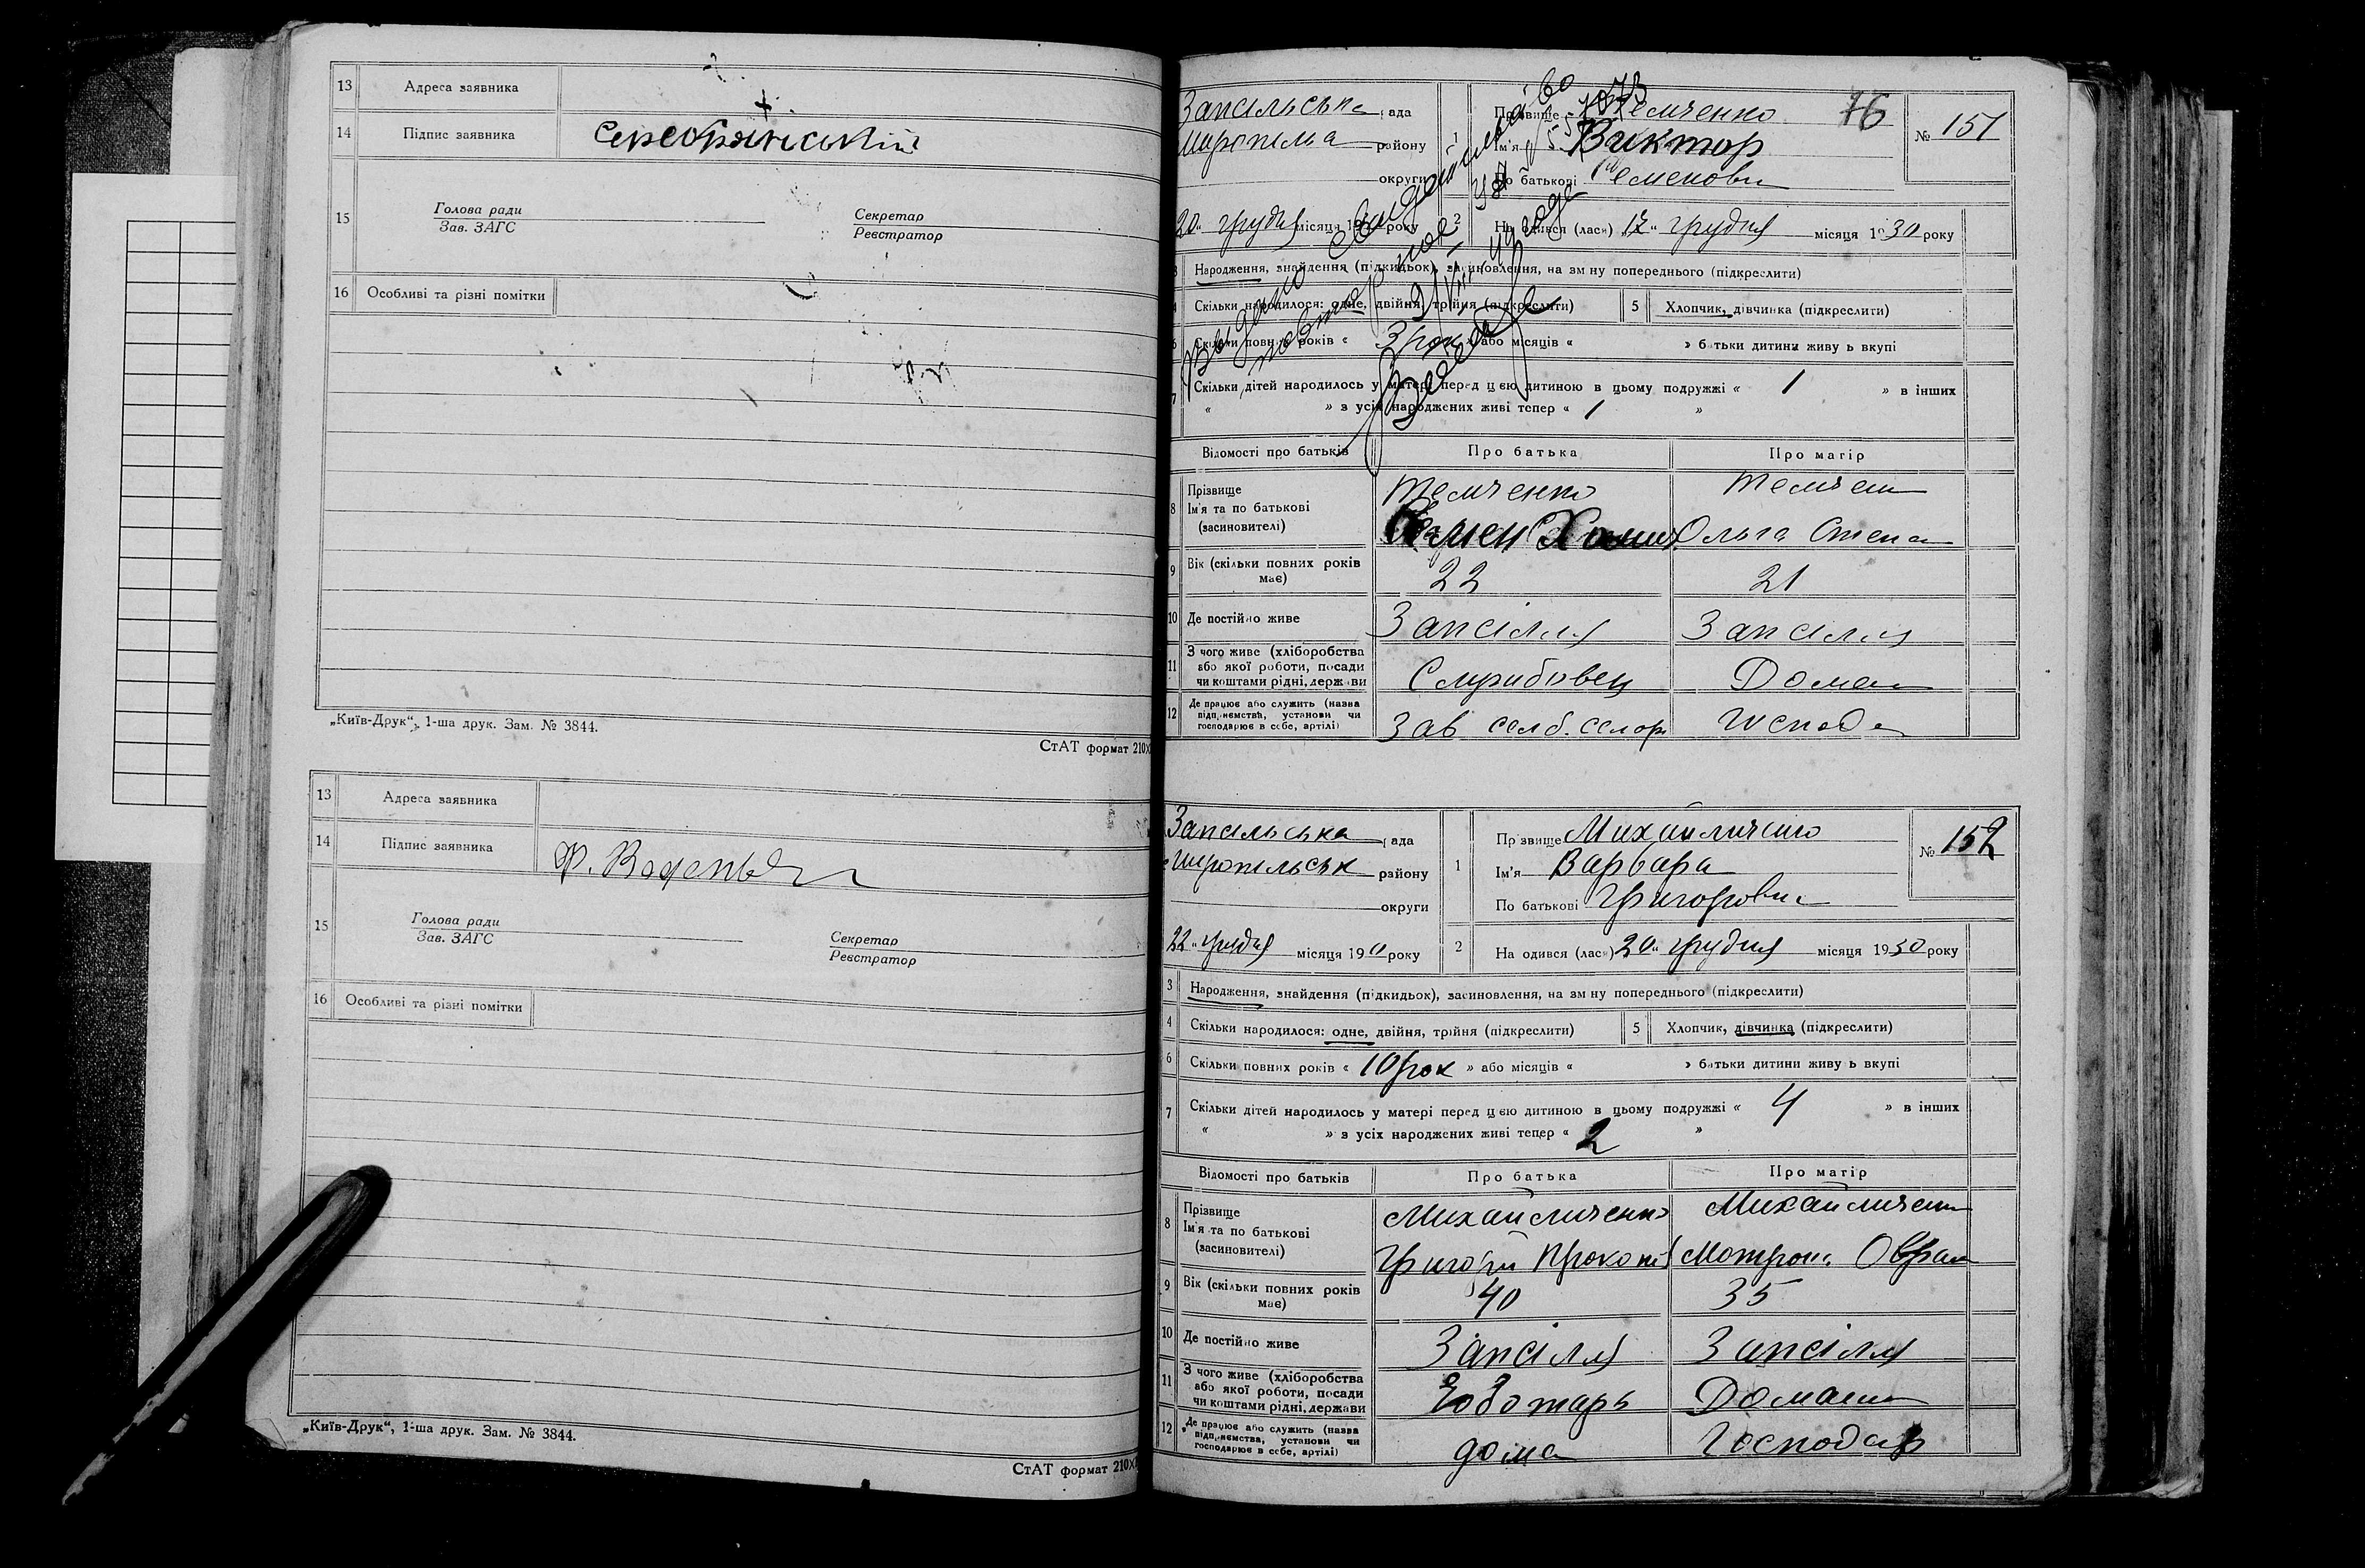 13 Адреса заявника
14 Підпис заявника Серебрянський
15 Голова ради
Зав. ЗАГС
Секретар
Реєстратор
16 Особливі та різні помітки
„Київ-Друк“, 1-ша друк. Зам. № 3844.
СтАТ формат 210
13 Адреса заявника
14 Підпис заявника
15 Голова ради
Зав. ЗАГС
Секретар
Реєстратор
16 Особливі та різні помітки
„Київ-Друк“, 1-ша друк. Зам. № 3844.
СтАТ формат 210
76
Запсільська рада
району
округи
1 Прізвище Темченко
Ім'я Виктор
По батькові Семенови
№ 151
20 грудня місяця року
2 На одився (лась) 17 грудня місяця 1930 року
Народження, знайдення (підкидьок), засиновлення, на зм ну попереднього (підкреслити)
Скільки народилося: одне, двійня, трійня (підкреслити) 5 Хлопчик, дівчинка (підкреслити)
Скільки повних років « 3 рок » або місяців « » батьки дитини живу ь вкупі
7 Скільки дітей народилось у матері перед цєю дитиною в цьому подружжі « 1 » в інших
« » з усіх народжених живі тепер « 1 »
Відомості про батьків Про батька Про матір
8 Прізвище
Ім'я та по батькові
(засиновителі)
Темченко
Семен Хомич
Темчен
Ольга Степа
9 Вік (скільки повних років має) 22 21
10 Де постійно живе Запсілля Запсілля
11 З чого живе (хліборобства
або якої роботи, посади
чи коштами рідні, держави
Службовец Дома
12 Де працює або служить (назва
підприємства, установи чи
господарює в себе, артілі)
Зав
Запсільська рада
району
округи
1 Прізвище Михайличенко
Ім'я Варвара
По батькові Григоровна
№ 152
22 грудня місяця 19 року
2 На одився (лась) 20 грудня місяця 1930 року
3 Народження, знайдення (підкидьок), засиновлення, на зм ну попереднього (підкреслити)
4 Скільки народилося: одне, двійня, трійня (підкреслити) 5 Хлопчик, дівчинка (підкреслити)
6 Скільки повних років « 10 рок » або місяців « » батьки дитини живу ь вкупі
7 Скільки дітей народилось у матері перед цєю дитиною в цьому подружжі « 4 » в інших
« » з усіх народжених живі тепер « 2 »
Відомості про батьків Про батька Про матір
8 Прізвище
Ім'я та по батькові
(засиновителі)
Михайличенко
Григорій Прокоп
Михайличен
Мотрона
9 Вік (скільки повних років має) 40 35
10 Де постійно живе Запсілля Запсілля
11 З чого живе (хліборобства
або якої роботи, посади
чи коштами рідні, держави
Чоботарь Домаш
12 Де працює або служить (назва
підприємства, установи чи
господарює в себе, артілі)
дома Господар